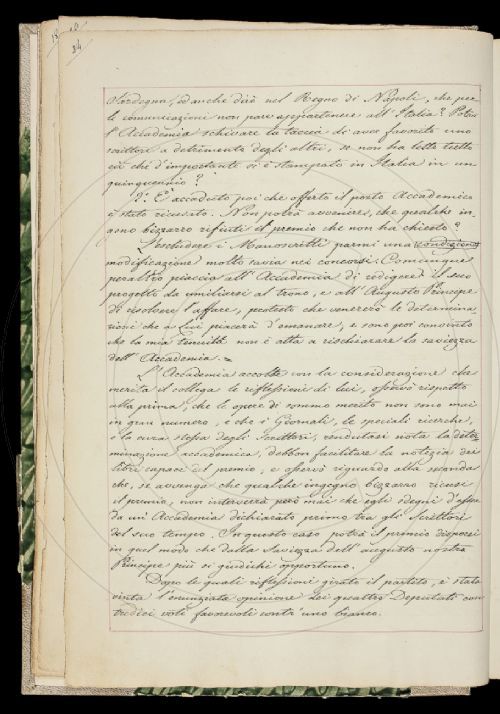 Sardegna, ed anche dirò nel Regno di Napoli, che per
le comunicazioni non pare appartenere all'Italia? Potrà
l'Accademia schivare la taccia di aver favorito uno
scrittore a detrimento degli altri, se non ha letto tutto
ciò che d'importante si è stampato in Italia in un
quinquennio?
2.° È accaduto poi che offerto il posto Accademico
è stato ricusato. Non potrà avvenire, che qualche in=
gegno bizzarro rifiuti il premio che non ha chiesto?
L'escludere i Manoscritti parmi una condizione
modificazione molto savia nei concorsi. Comunque
peraltro piaccia all'Accademia di redigere il suo
progetto da umiliarsi al trono, e all'Augusto Principe
di risolvere l'affare, protesto che venererò le determina
zioni che a Lui piacerà d'emanare, e sono poi convinto
che la mia tenuità non è atta a rischiarare la saviezza
dell'Accademia. =
L'Accademia accolte con la considerazione che
merita il collega le riflessioni di lui, osservò rispetto
alla prima, che le opere di sommo merito non sono mai
in gran numero, e che i Giornali, le speciali ricerche,
e la cura stessa degli Scrittori, rendutasi nota la deter=
minazione accademica, debbon facilitare la notizia dei
libri capaci del premio, e osservò riguardo alla seconda
che, se avvenga che qualche ingegno bizzarro ricusi
il premio, non interverrà però mai che egli sdegni d'esser
da un'Accademia dichiarato primo tra gli Scrittori
del suo tempo. In questo caso potrà il premio disporsi
in quel modo che dalla Saviezza dell'augusto nostro
Principe più si giudichi opportuno.
Dopo le quali riflessioni girato il partito, è stata
vinta l'enunziata opinione dei quattro Deputati con
tredici voti favorevoli contr'uno bianco.